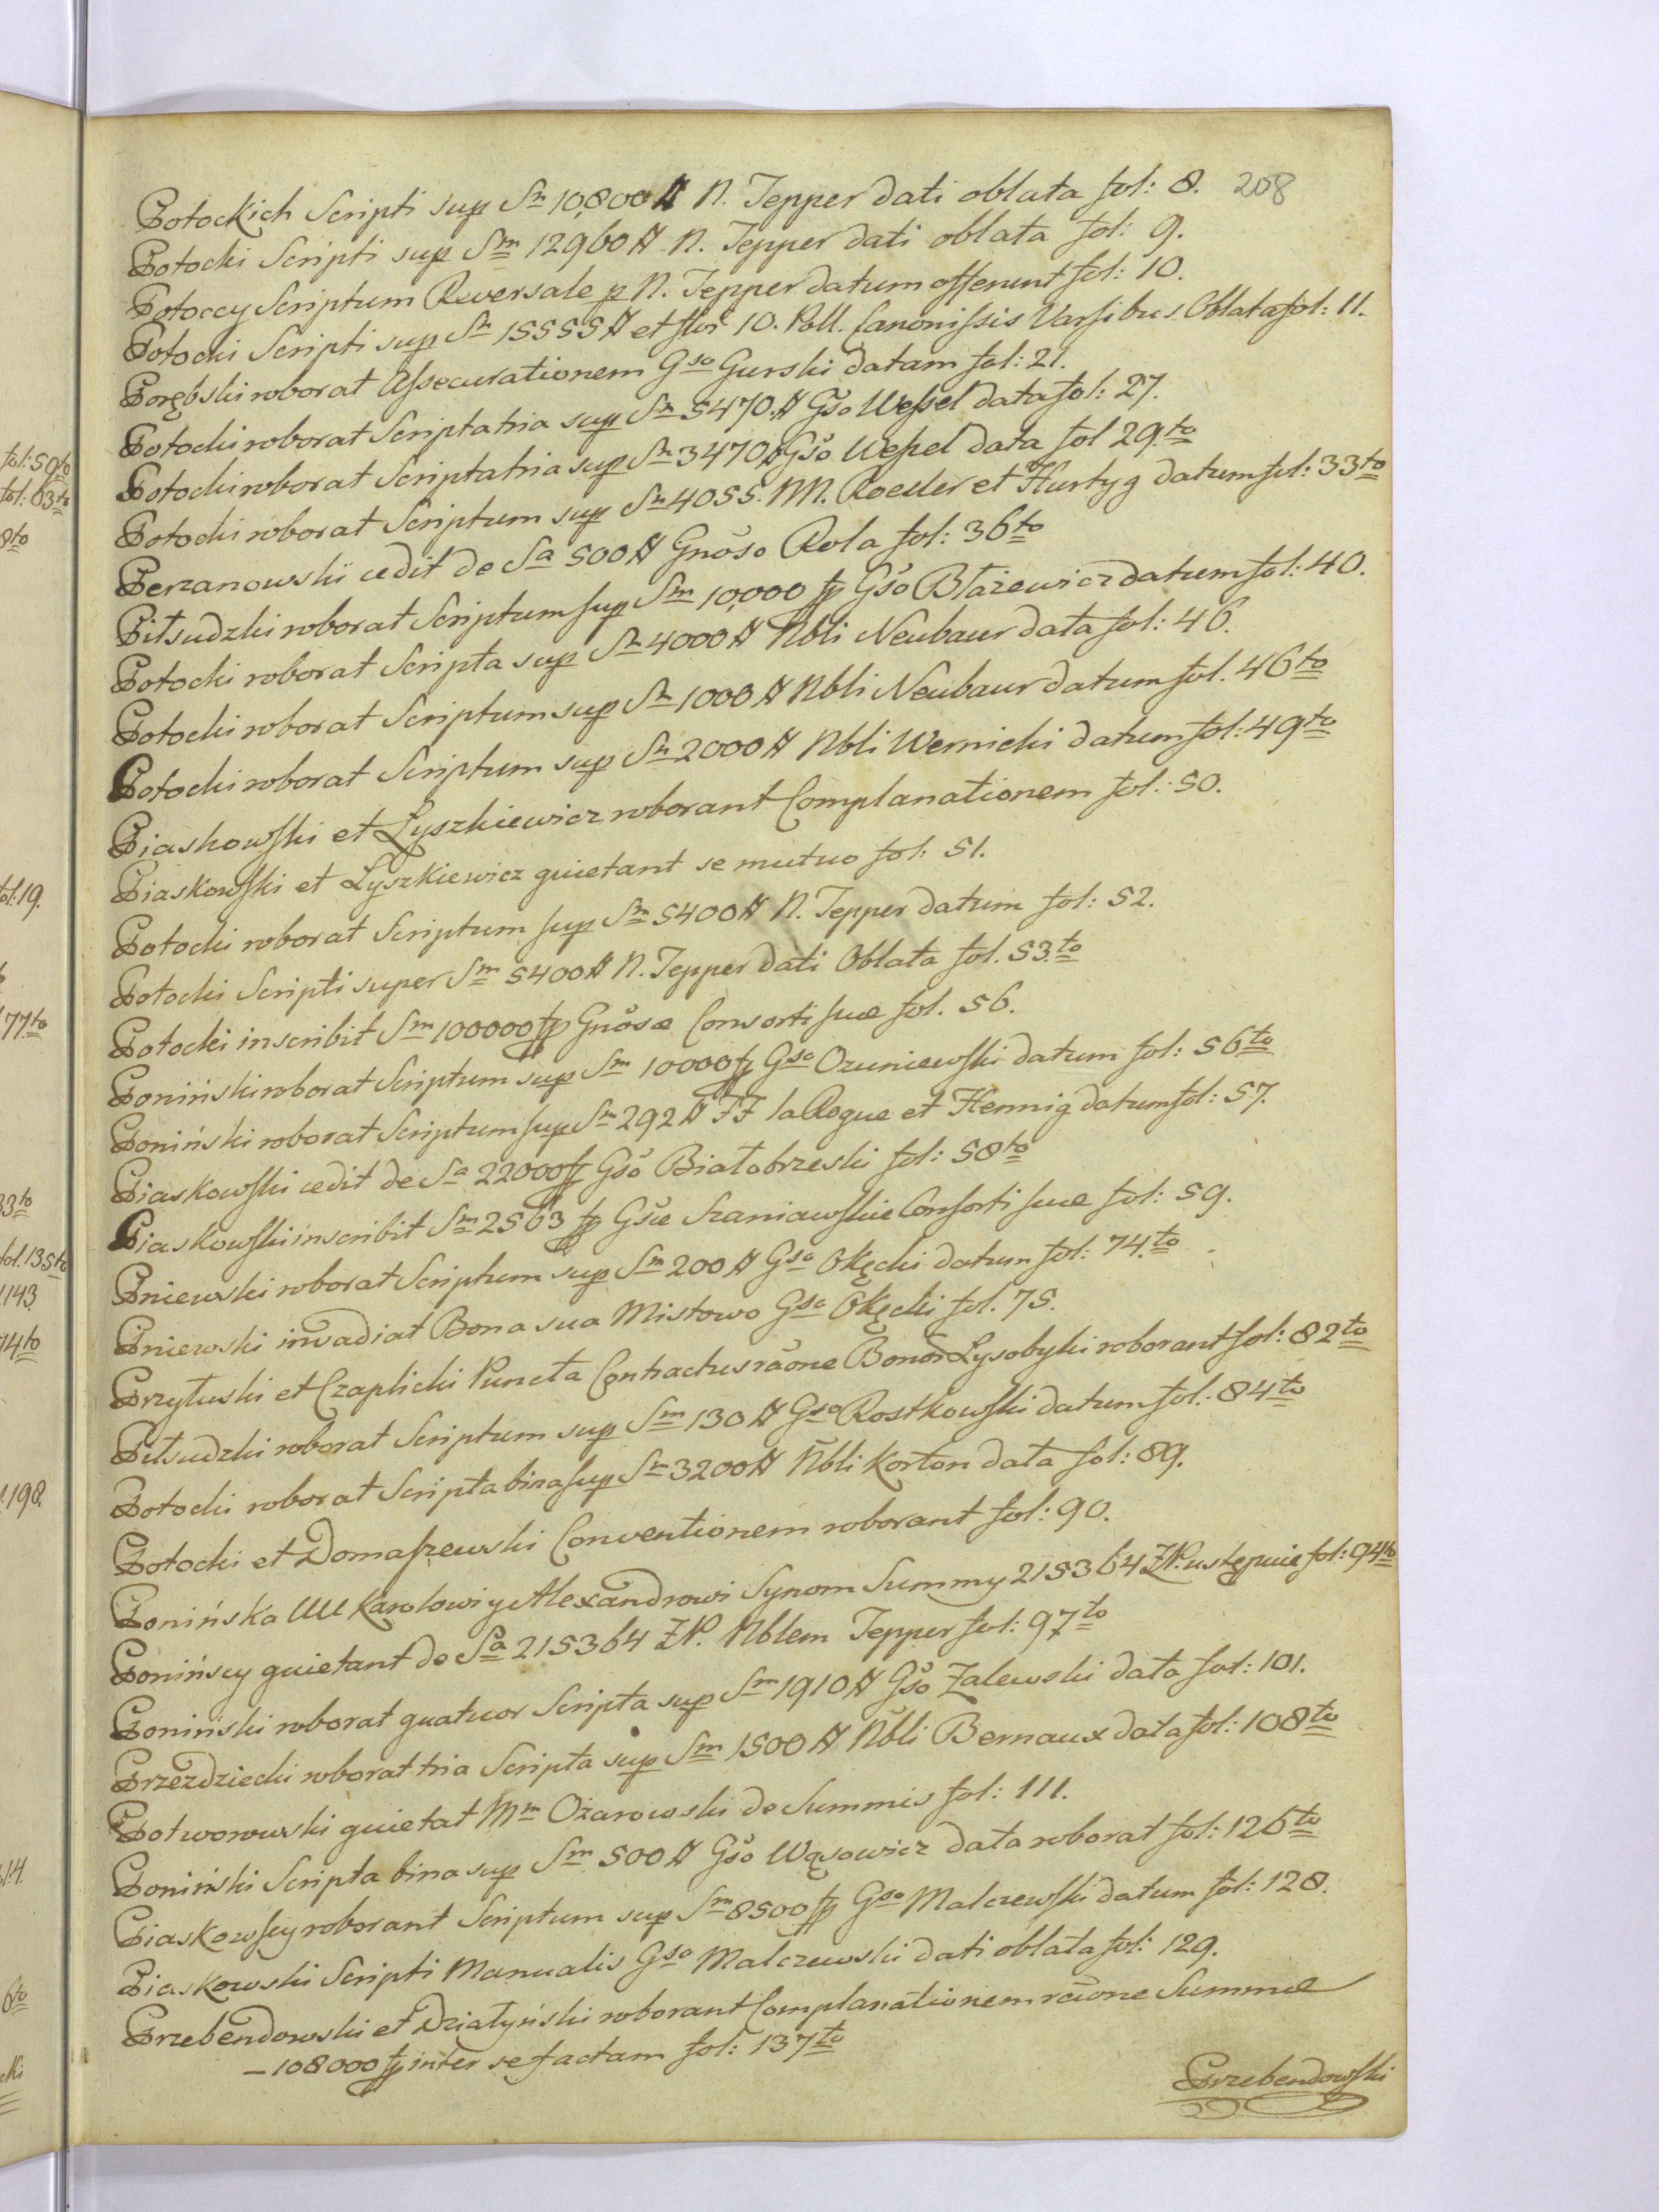 208
Potockich Scripti sup Sm 10,800 # N. Tepper dati oblata fol: 8.
Potocki Scripti sup Sm 12960 # N. Tepper dati oblata fol: 9.
Potoccy Scriptum Reversale p N. Tepper datum offerunt fol: 10.
Potocki Scripti sup Sm 15555 # et flor 10. Poll. Canonissis Varsibus Oblata fol: 11.
Porębski roborat Assecurationem Gso Gurski datam fol: 21.
Potocki roborat Scripta tria sup Sm 5470 # Gso Wessel data fol: 27.
Potocki roborat Scripta tria sup Sm 3470 # Gso Wessel data fol 29.to
Potocki roborat Scriptum sup Sm 4055. NN. Roesler et Hurtyg datum fol: 33to
Perzanowskii cedit de Sa 500 # Gnoso Rola fol: 36to
Piłsudzki roborat Scriptum sup Sm 10,000 fp Gso Błażewicz datum fol: 40.
Potocki roborat Scripta sup Sm 4000 # Nbli Neubaur data fol: 46.
Potocki roborat Scriptum sup Sm 1000 # Nbli Neubaur datum fol. 46to
Potocki roborat Scriptum sup Sm 2000 # Nbli Wernicki datum fol: 49to
Piaskowski et Łyszkiewicz roborant Complanationem fol: 50.
Piaskowski et Łyszkiewicz quietant se mutuo fol: 51.
Potocki roborat Scriptum sup Sm 5400 # N. Tepper datum fol: 52.
Potocki Scripti super Sm 5400 # N. Tepper dati Oblata fol. 53.to
Potocki inscribit Sm 100000 fp Gnosæ Consorti suæ fol. 56.
Poniński roborat Scriptum sup Sm 10000 fp Gso Ozuniewski datum fol: 56to
Poniński roborat Scriptum sup Sm 292 # FF la Rogue et Hennig datum fol: 57.
Piaskowski cedit de Sa 22000 fp Gso Białobrzeski fol: 58to
Piaskowski inscribit Sm 2563 fp Gsæ Szaniawskie Consorti suæ fol: 59.
Pniewski roborat Scriptum sup Sm 200 # Gso Okęcki datum fol: 74.to
Pniewski invadiat Bona sua Mistowo Gso Okęcki fol. 75.
Przyłuski et Czaplicki Puncta Contractus raone Bonor Łysobyki roborant fol: 82to
Piłsudzki roborat Scriptum sup Sm 130 # Gso Rostkowski datum fol: 84to
Potocki roborat Scripta bina sup Sm 3200 # Nbli Korton data fol: 89.
Potocki et Domaszewski Conventionem roborant fol: 90.
Ponińska UU Karolowi y Alexandrowi Synom Summy 215364 ZP. ustępuie fol: 94to
Ponińscy quietant de Sa 215364 ZP. Nblem Tepper fol: 97to
Poniński roborat quatuor Scripta sup Sm 1910 # Gso Zalewski data fol: 101.
Przezdziecki roborat tria Scripta sup Sm 1500 # Nbli Bernaux data fol: 108to
Potworowski quietat Mm Ożarowski de Summis fol: 111.
Poniński Scripta bina sup Sm 500 # Gso Wąsowicz data roborat fol: 126to
Piaskowscy roborant Scriptum sup Sm 8500 fp Gso Malczewski datum fol: 128.
Piaskowski Scripti Manualis Gso Malczewski dati oblata fol: 129.
Przebendowski et Działyński roborant Complanationem raone Summæ
– 108000 fp inter se factam fol: 137to
Przebendowski
fol: 50to
fol: 63to
8to
fol: 19.
77to
33to
fol. 135to
143
74to
198.
14.
6to